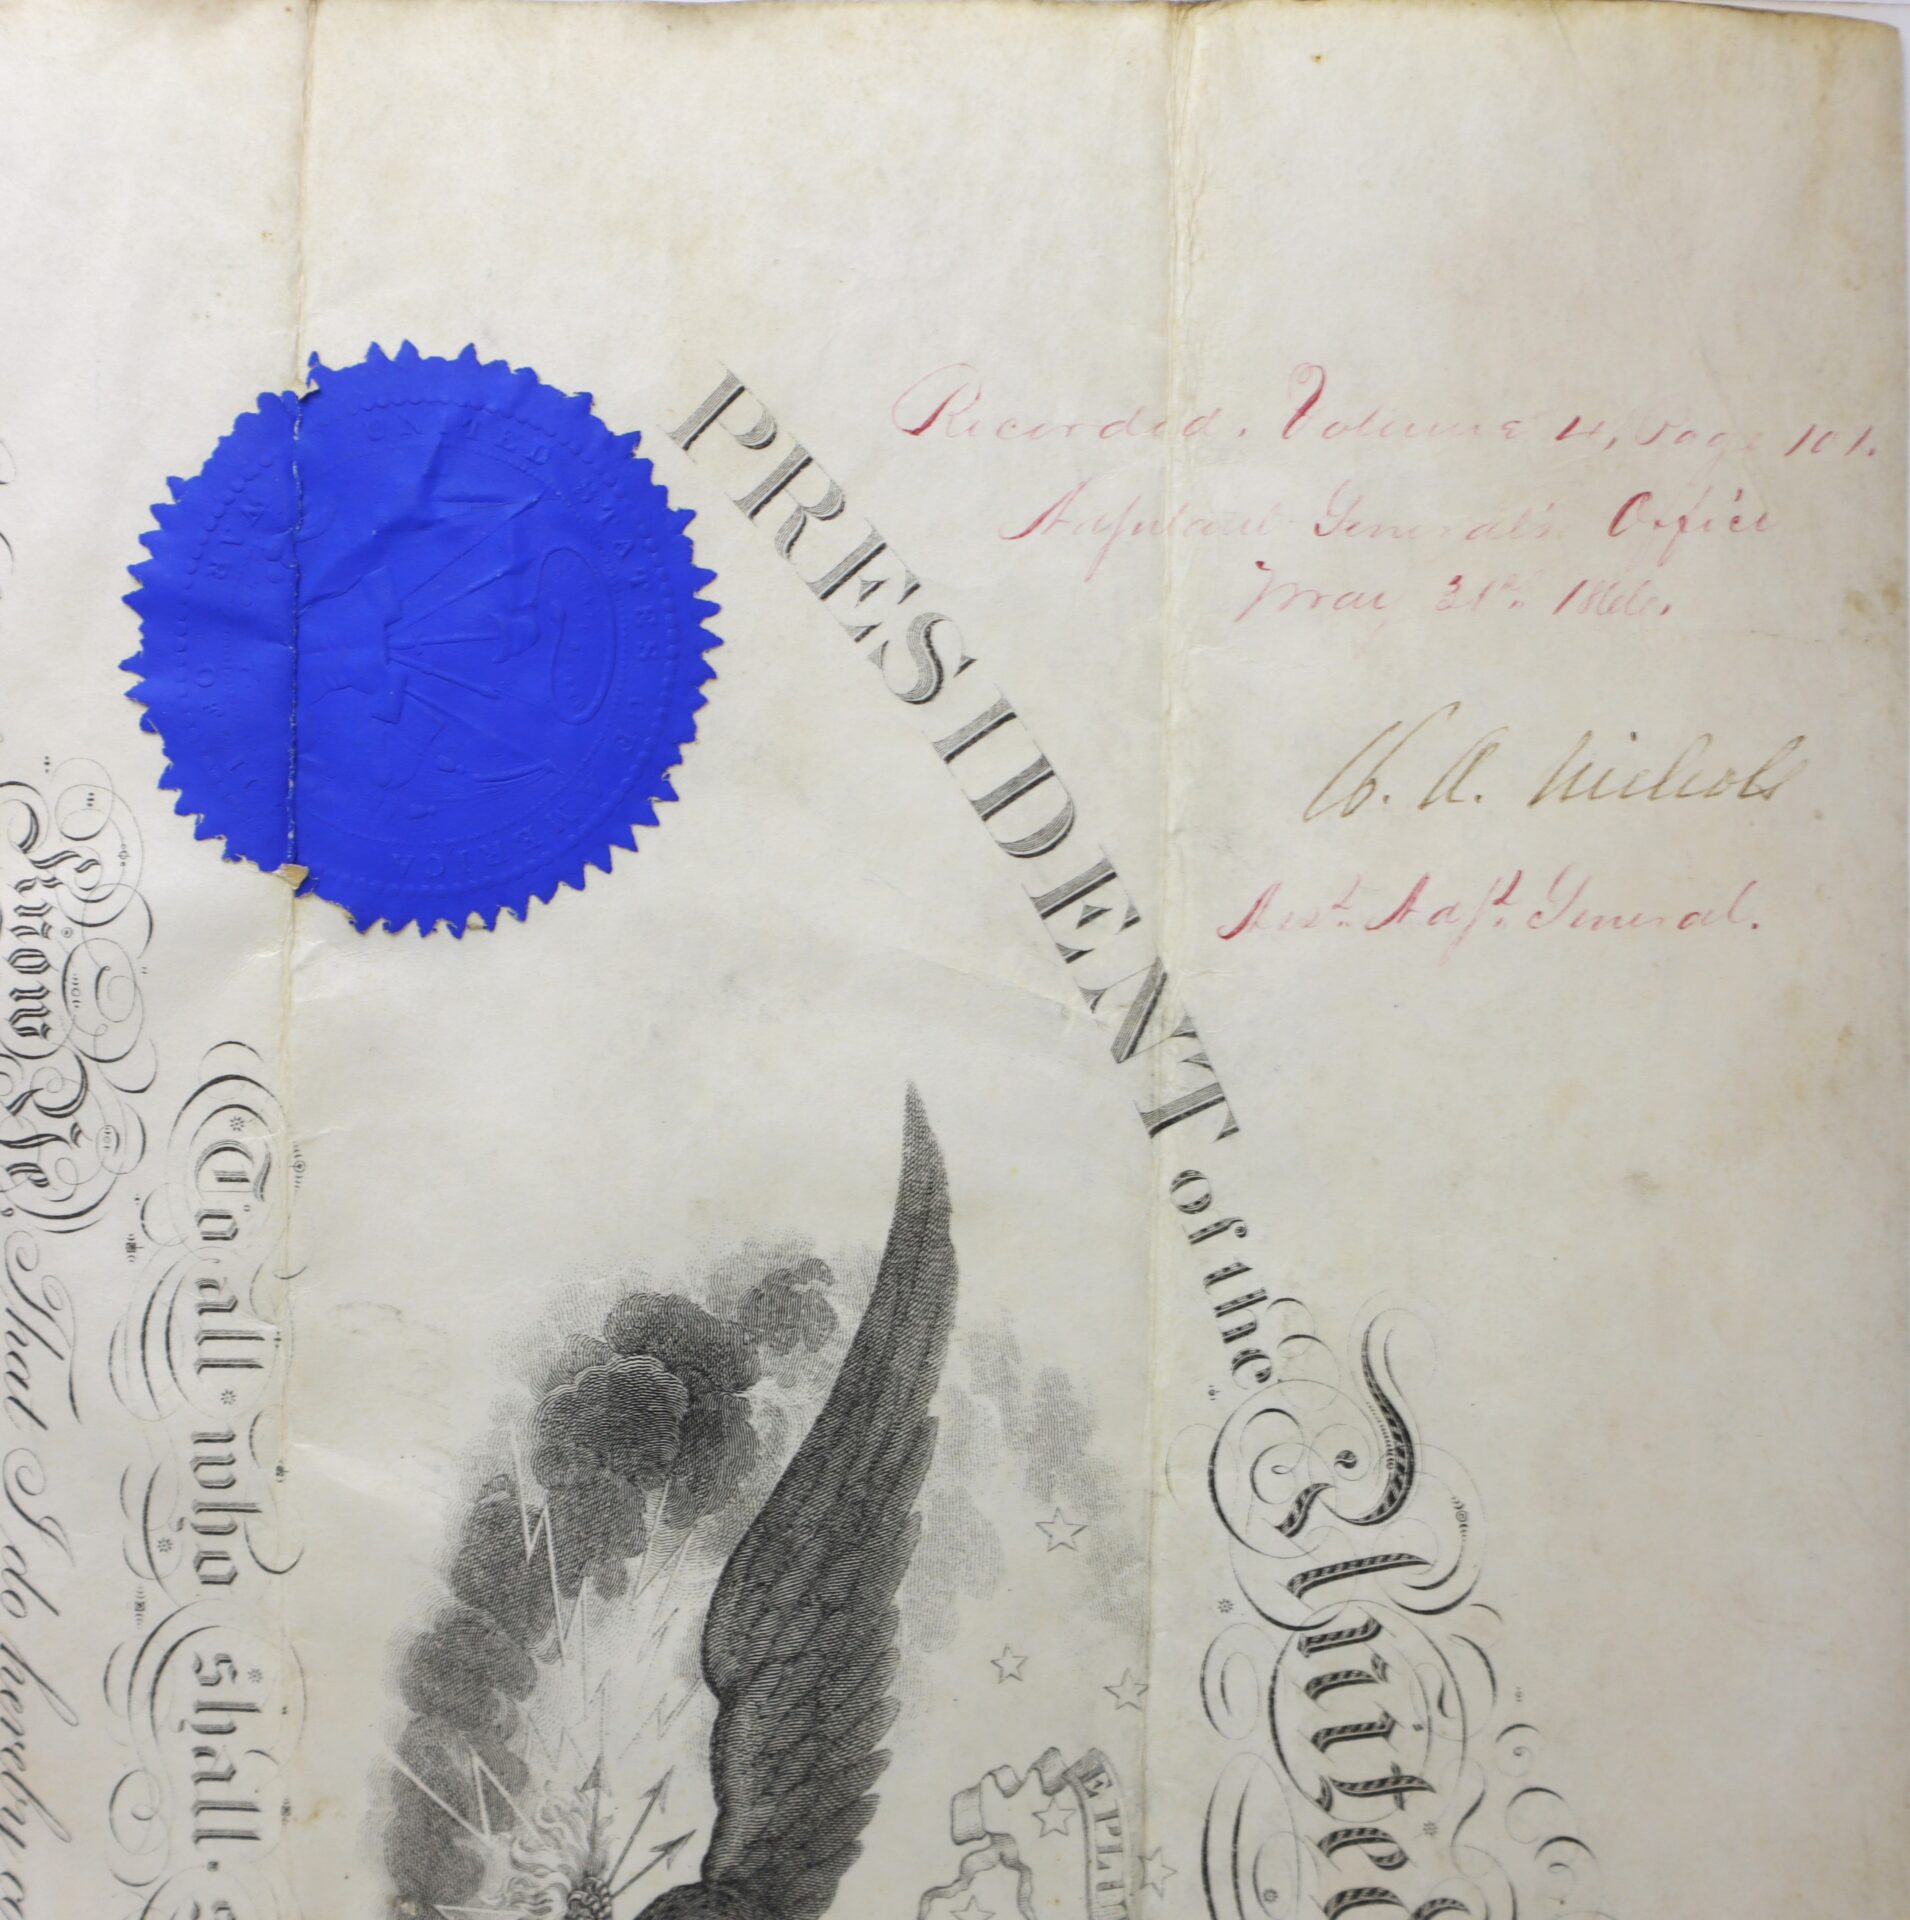 Recorded. Volume 4, Page 101.
Adjutant General's Office
May 31st. 1866.
W. A. Nichols
Asst. Adjt. General.
PRESIDENT of the United
E PLU
To all who shall
Know Ye, That I do hereby
UNITED STATES OF AMERICA
WAR OFFICE